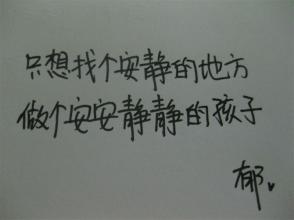 只想找个安静的地方
做个安安静静的孩子
郁。